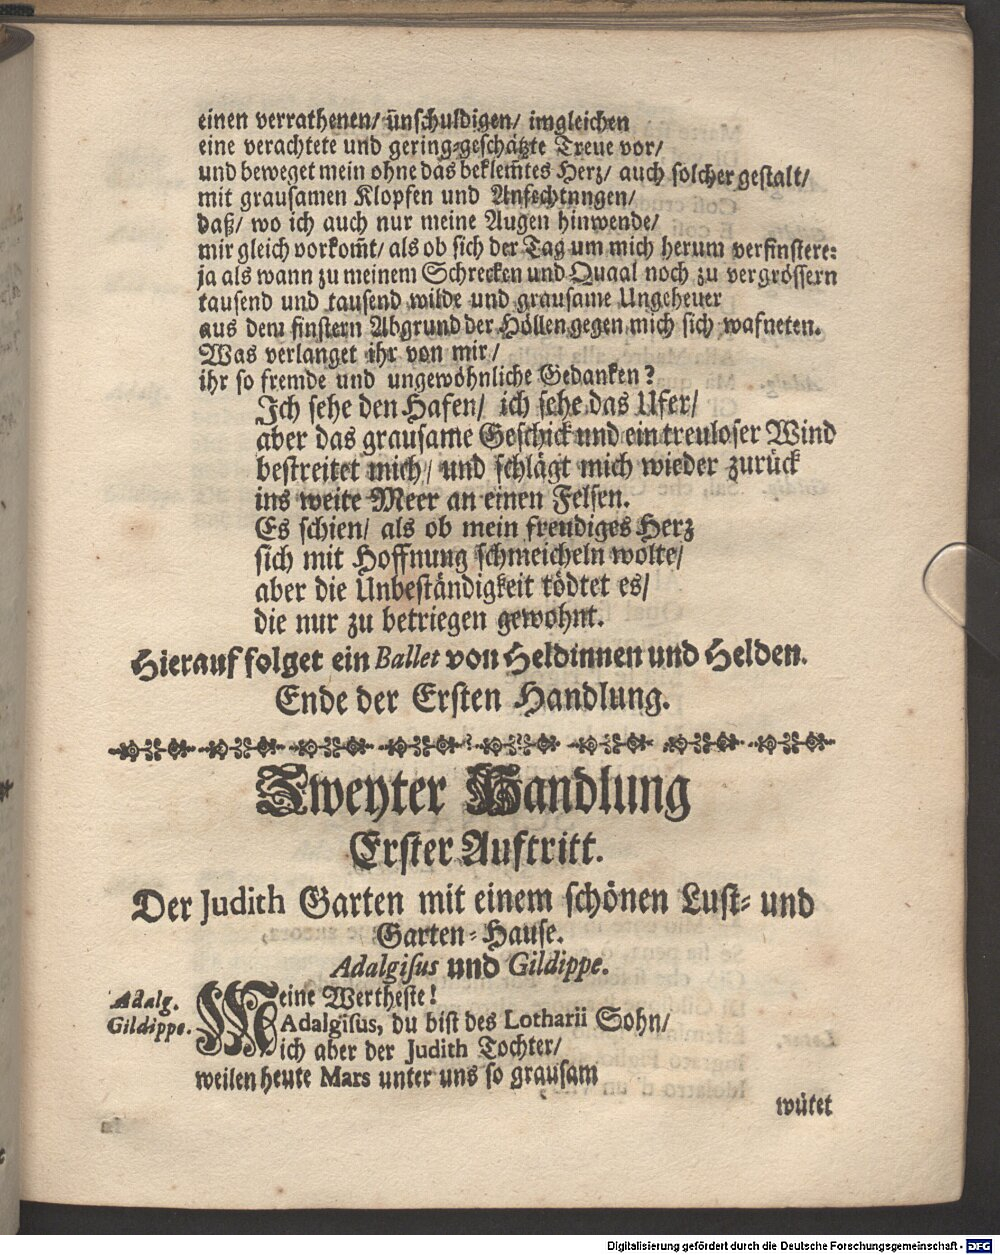 einen verrathenen/ unschuldigen/ imgleichen
eine verachtete und gering-geschätzte Treue vor/
und beweget mein ohne das beklem̃tes Herz/ auch solcher gestalt/
mit grausamen Klopfen und Anfechtungen/
daß/ wo ich auch nur meine Augen hinwende/
mir gleich vorkom̃t/ als ob sich der Tag um mich herum verfinstere:
ja als wann zu meinem Schrecken und Quaal noch zu vergrössern
tausend und tausend wilde und grausame Ungeheuer
aus dem finstern Abgrund der Höllen gegen mich sich wafneten.
Was verlanget ihr von mir/
ihr so fremde und ungewöhnliche Gedanken?
Ich sehe den Hafen/ ich sehe das Ufer/
aber das grausame Geschick und ein treuloser Wind
bestreitet mich/ und schlägt mich wieder zurück
ins weite Meer an einen Felsen.
Es schien/ als ob mein freudiges Herz
sich mit Hoffnung schmeicheln wolte/
aber die Unbeständigkeit tödtet es/
die nur zu betriegen gewohnt.
Hierauf folget ein Ballet von Heldinnen und Helden.
Ende der Ersten Handlung.
Zweyter Handlung
Erster Auftritt.
Der Judith Garten mit einem schönen Lust- und
Garten-Hause.
Adalgisus und Gildippe.
Adalg. Meine Wertheste!
Gildippe. Adalgisus, du bist des Lotharii Sohn/
ich aber der Judith Tochter/
weilen heute Mars unter uns so grausam
wütet
Digitalisierung gefördert durch die Deutsche Forschungsgemeinschaft - DFG